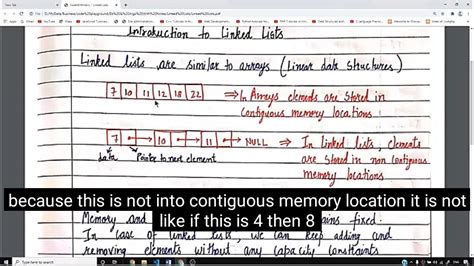 Introduction to Linked Lists
Linked lists are similar to arrays (Linear data structures)
7 10 11 12 18 22 ⇒ In Arrays elements are stored in
contiguous memory locations
7 → 10 → 11 → NULL ⇒ In linked lists, elements
are stored in non contiguous
memory locations
data Pointer to next element
because this is not into contiguous memory location it is not
like if this is 4 then 8
Memory and
ains fixed.
In case of linked lists, we can keep adding and
removing elements without any capacity constraints